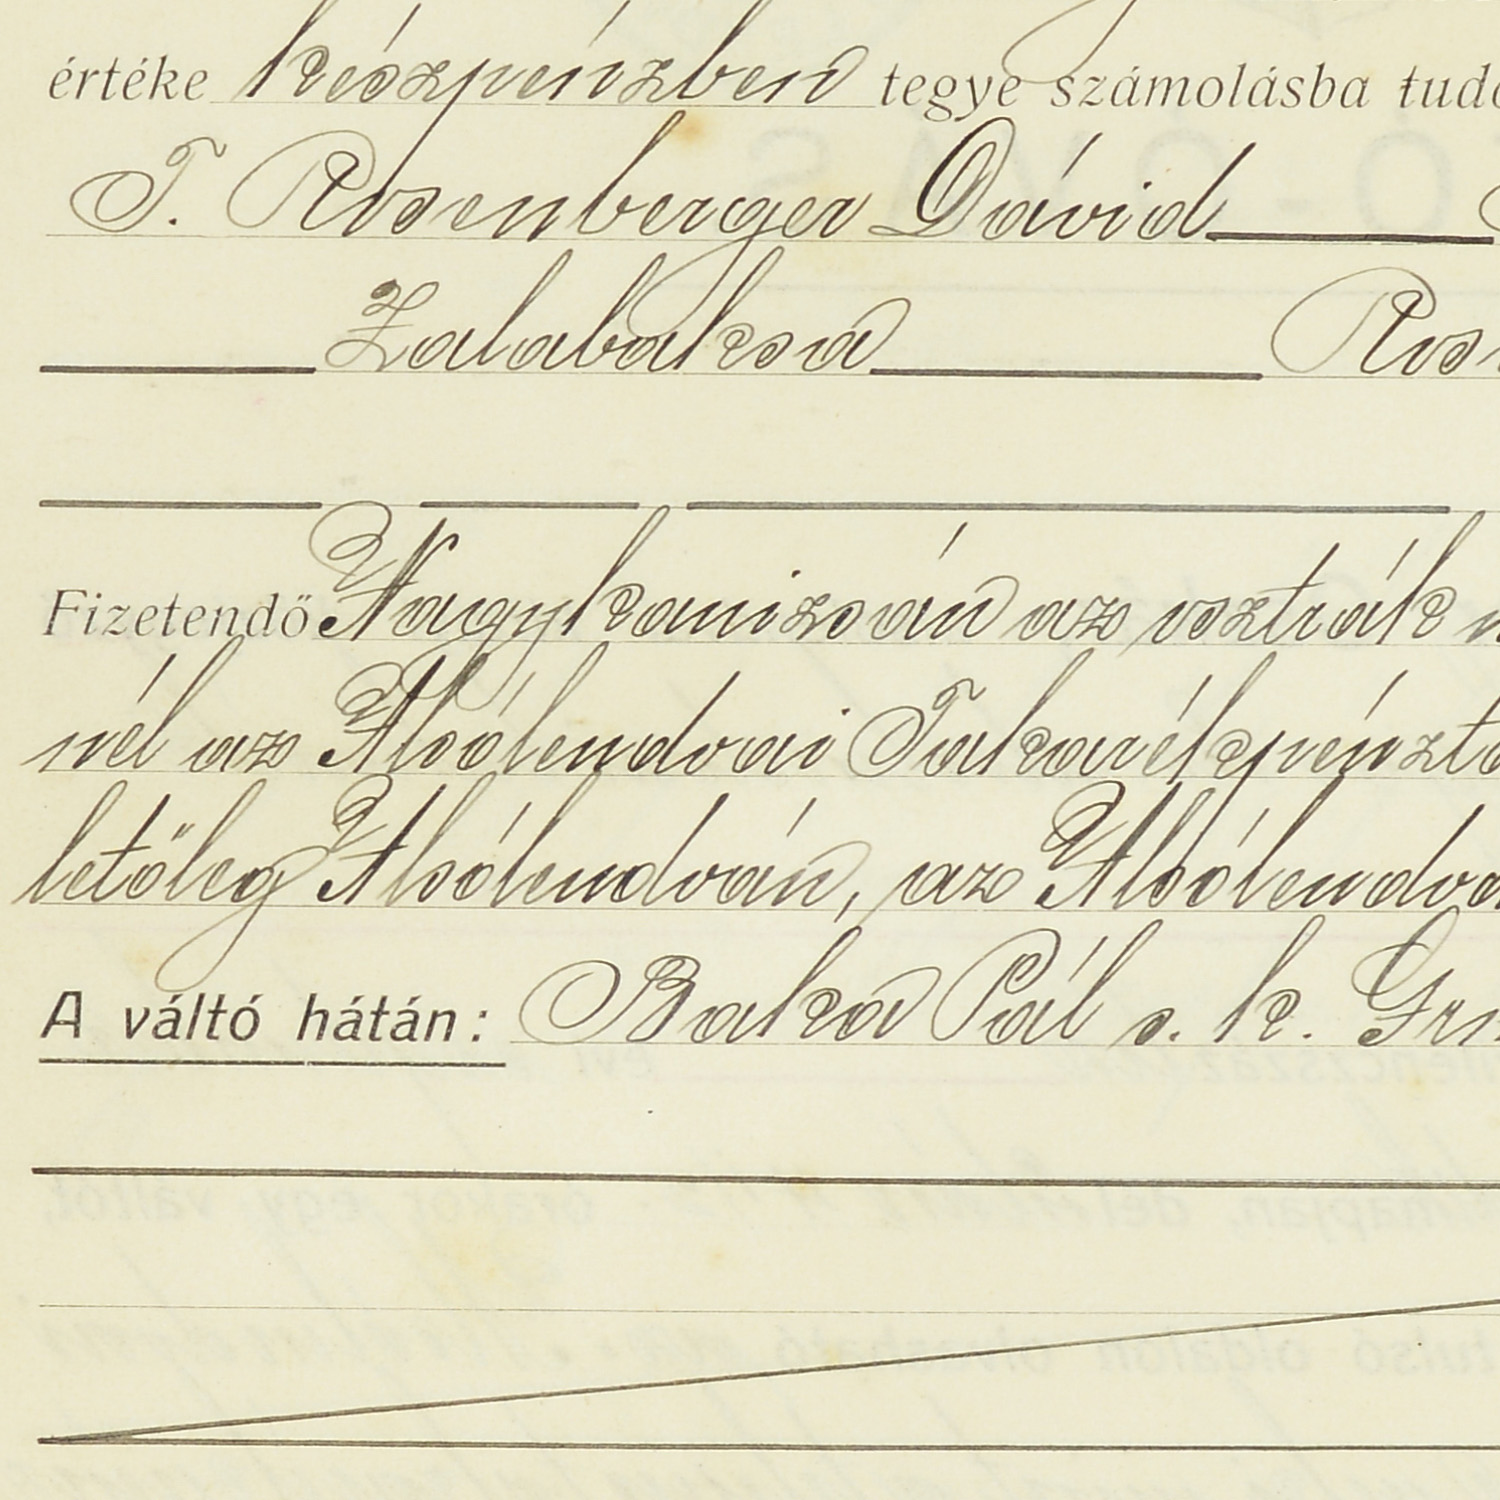 értéke készpénzben tegye számolásba
T. Rosenberger Dávid
Zalabaksa
Fizetendő Nagykanizsán az osztrák
nél az Alsólendvai Takarékpénztá
letőleg Alsólendván, az Alsólendva
A váltó hátán: Baka Pál s. k.